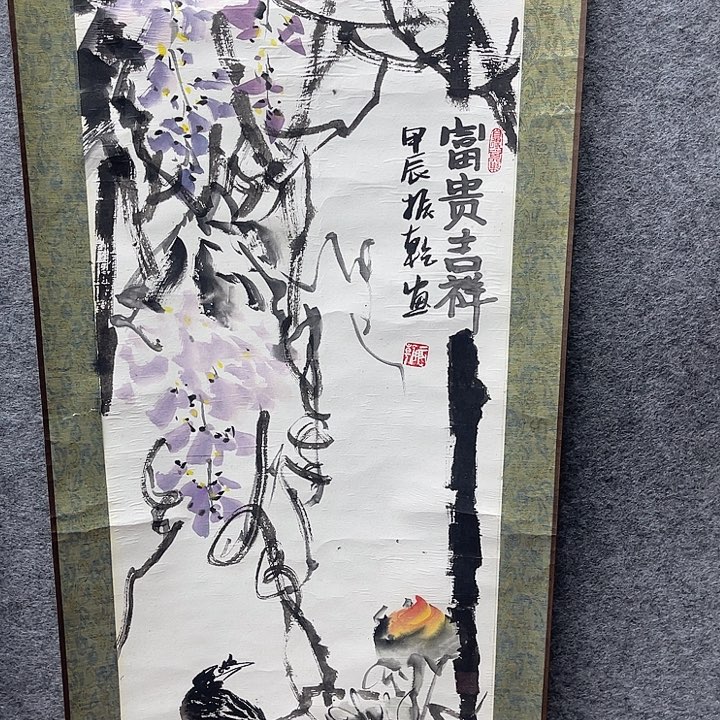 富贵吉祥
甲辰振乾画